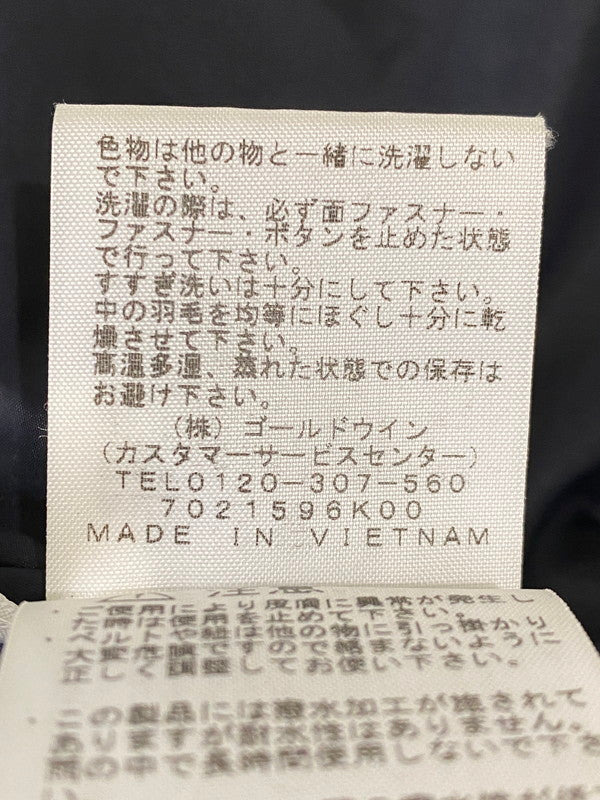 色物は他の物と一緒に洗濯しない
で下さい。
洗濯の際は、必ず面ファスナー・
ファスナー・ボタンを止めた状態
で行って下さい。
すすぎ洗いは十分にして下さい。
中の羽毛を均等にほぐし十分に乾
燥させて下さい。
高温多湿、蒸れた状態での保存は
お避け下さい。
(株)ゴールドウイン
(カスタマーサービスセンター)
TEL0120-307-560
7021596K00
MADE IN VIETNAM
この製品には撥水加工が施されて
ありますが耐水性はありません。
雨の中で長時間使用しないで下さ
い。